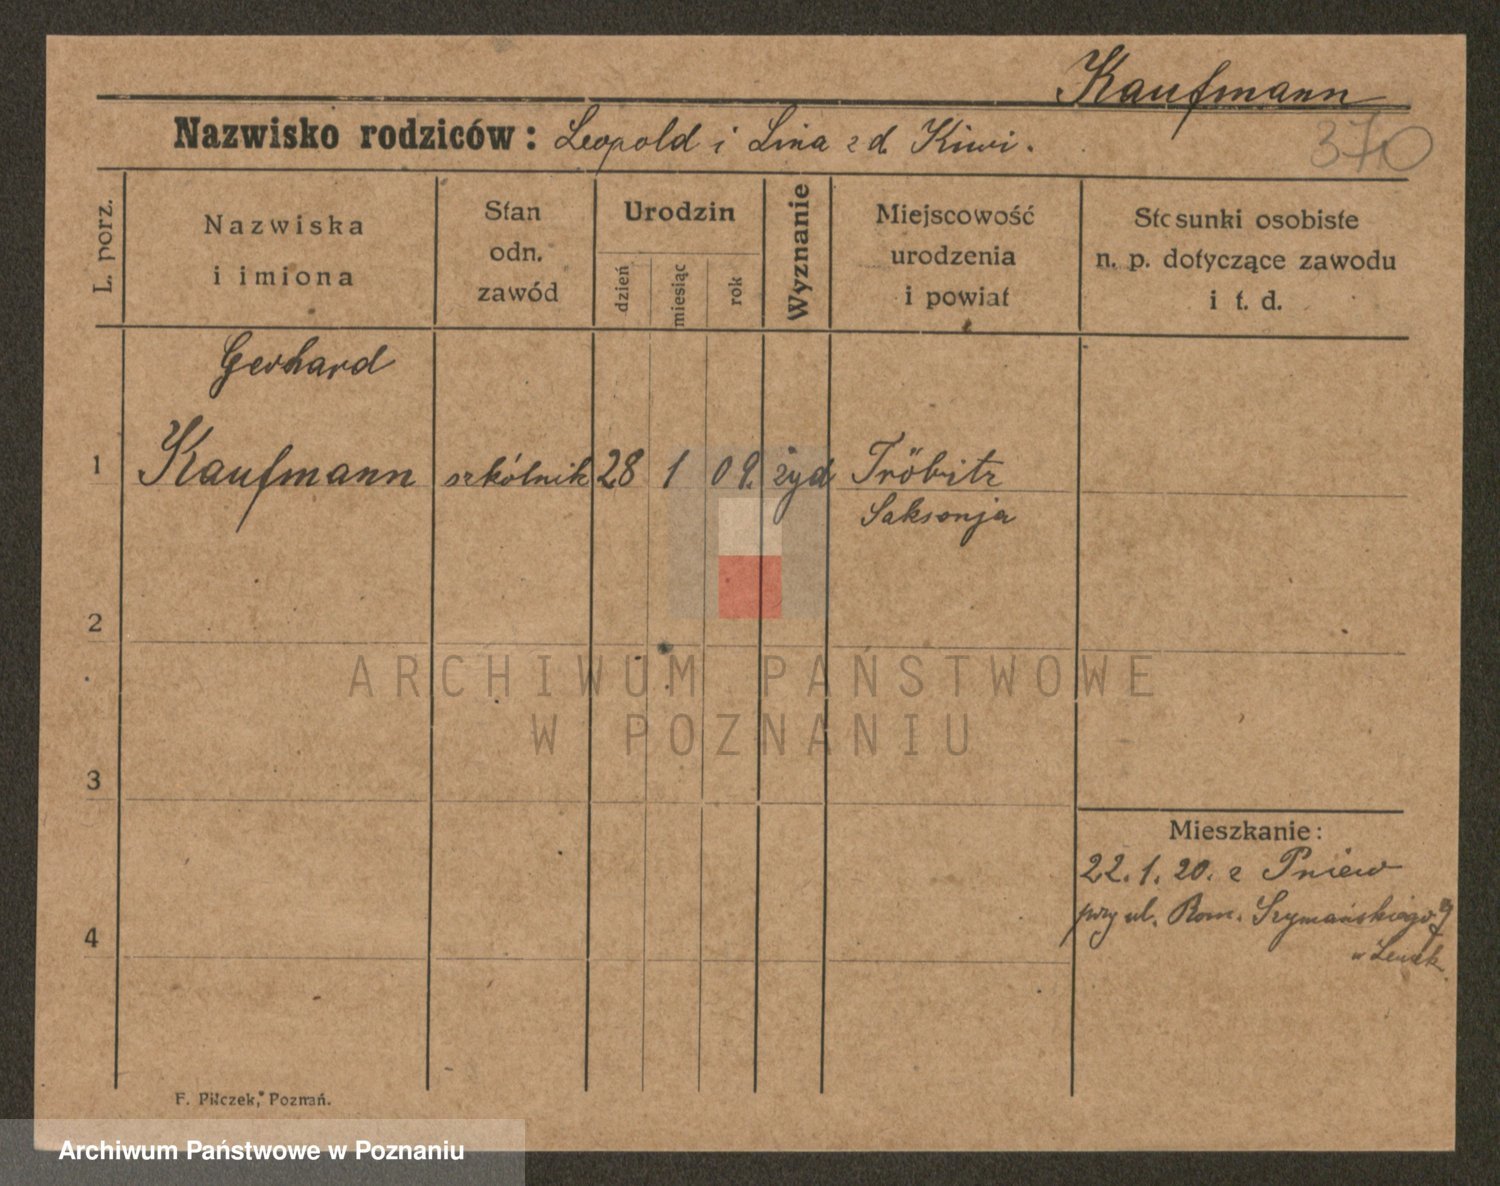 Kaufmann
370
Nazwisko rodziców: Leopold i Lina z d. Kiwi.
L. porz.
Nazwiska
i imiona
Stan
odn.
zawód
Urodzin
dzień
miesiąc
rok
Wyznanie
Miejscowość
urodzenia
i powiat
Stosunki osobiste
n. p. dotyczące zawodu
i t. d.
Gerhard
1 Kaufmann szkólnik 28 1 09. żyd Tröbitz
Saksonja
2
ARCHIWUM PAŃSTWOWE
W POZNANIU
3
Mieszkanie:
22. 1. 20. z Pniew
przy ul. Rom. Szymańskiego 9
4
F. Pilczek, Poznań.
Archiwum Państwowe w Poznaniu